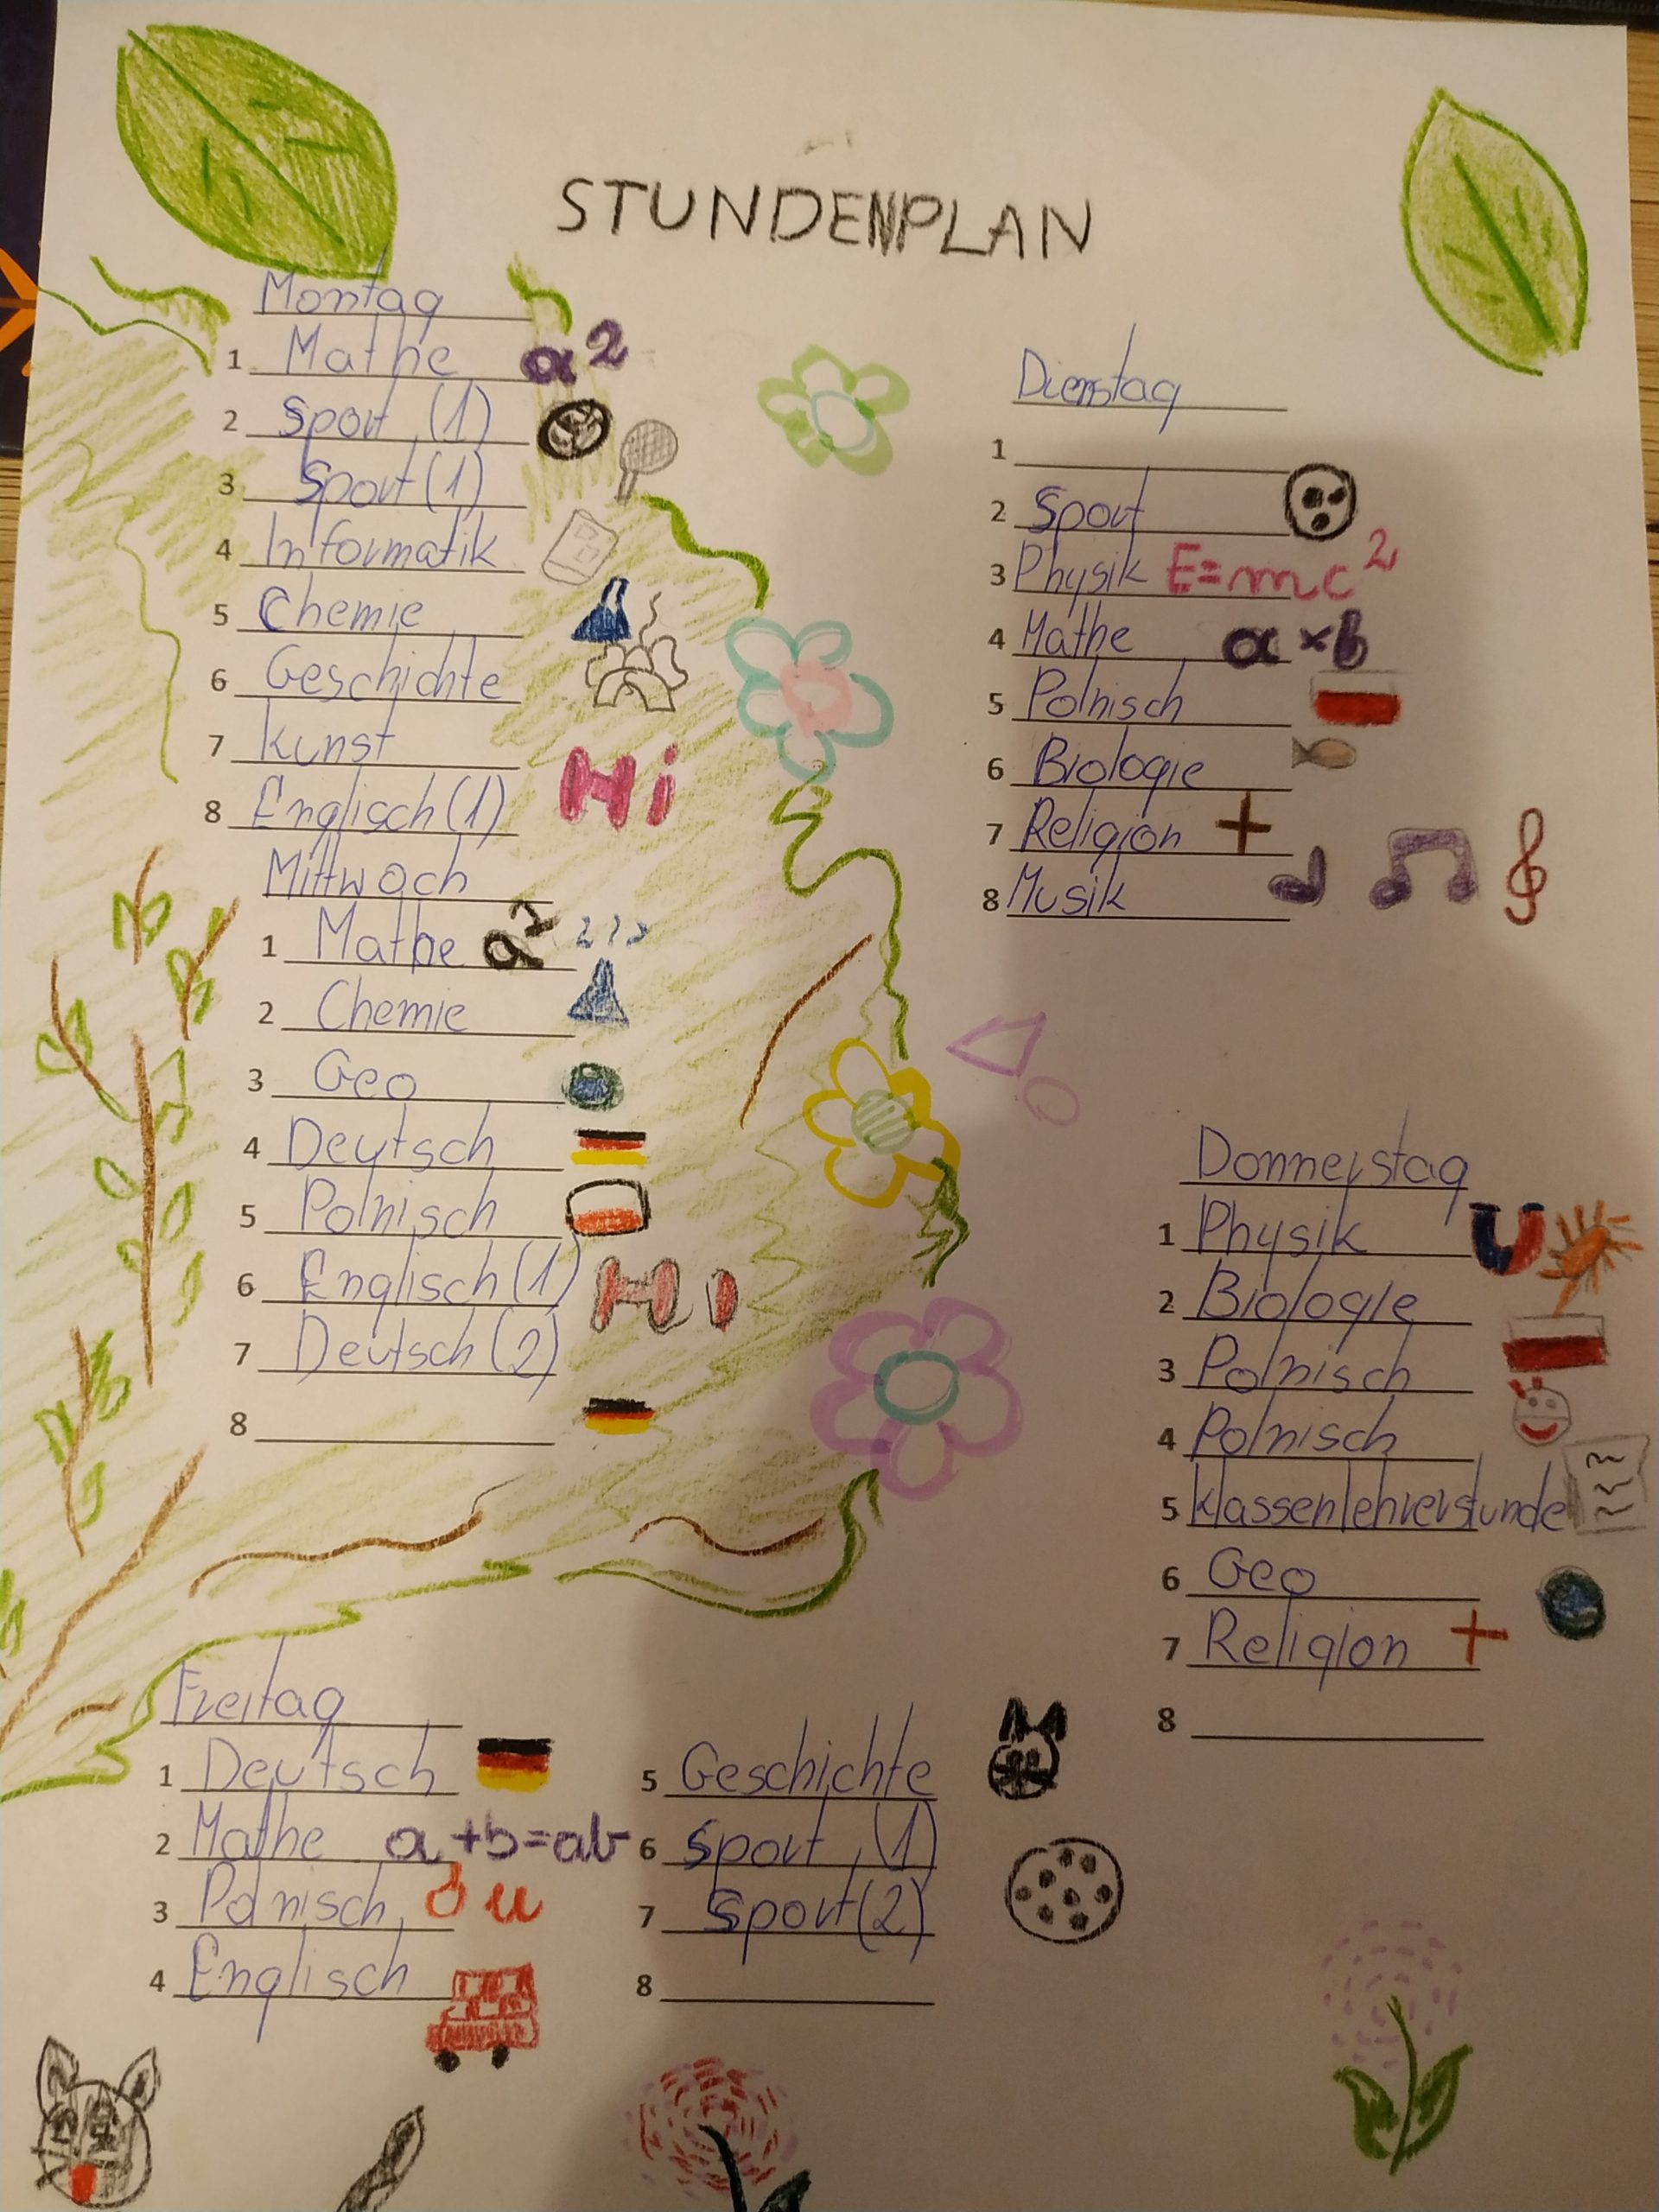 STUNDENPLAN
Montag
1 Mathe a2
2 Sport (1)
3 Sport (1)
4 Informatik
5 Chemie
6 Geschichte
7 Kunst
8 Englisch (1) Hi
Dienstag
1
2 Sport
3 Physik E=mc²
4 Mathe a×b
5 Polnisch
6 Biologie
7 Religion
8 Musik
Mittwoch
1 Mathe a²
2 Chemie
3 Geo
4 Deutsch
5 Polnisch
6 Englisch (1) Hi
7 Deutsch (2)
8
Donnerstag
1 Physik
2 Biologie
3 Polnisch
4 Polnisch
5 Klassenlehrerstunde
6 Geo
7 Religion
8
Freitag
1 Deutsch
2 Mathe a+b=ab
3 Polnisch ó u
4 Englisch
5 Geschichte
6 Sport (1)
7 Sport (2)
8